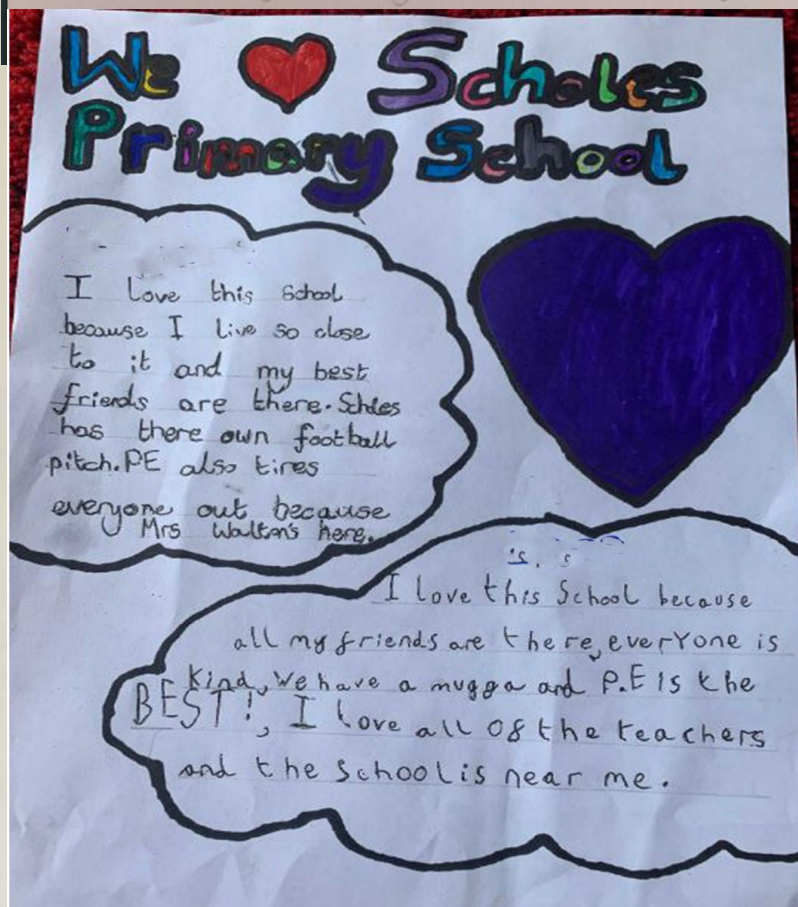 We Scholes
Primary School
I love this School
because I live so close
to it and my best
friends are there. Schles
has there own football
pitch. PE also tires
everyone out because
Mrs Walton's here.
I love this School because
all my friends are there, everyone is
kind, We have a mugga and P.E is the
BEST!, I love all of the teachers
and the School is near me.